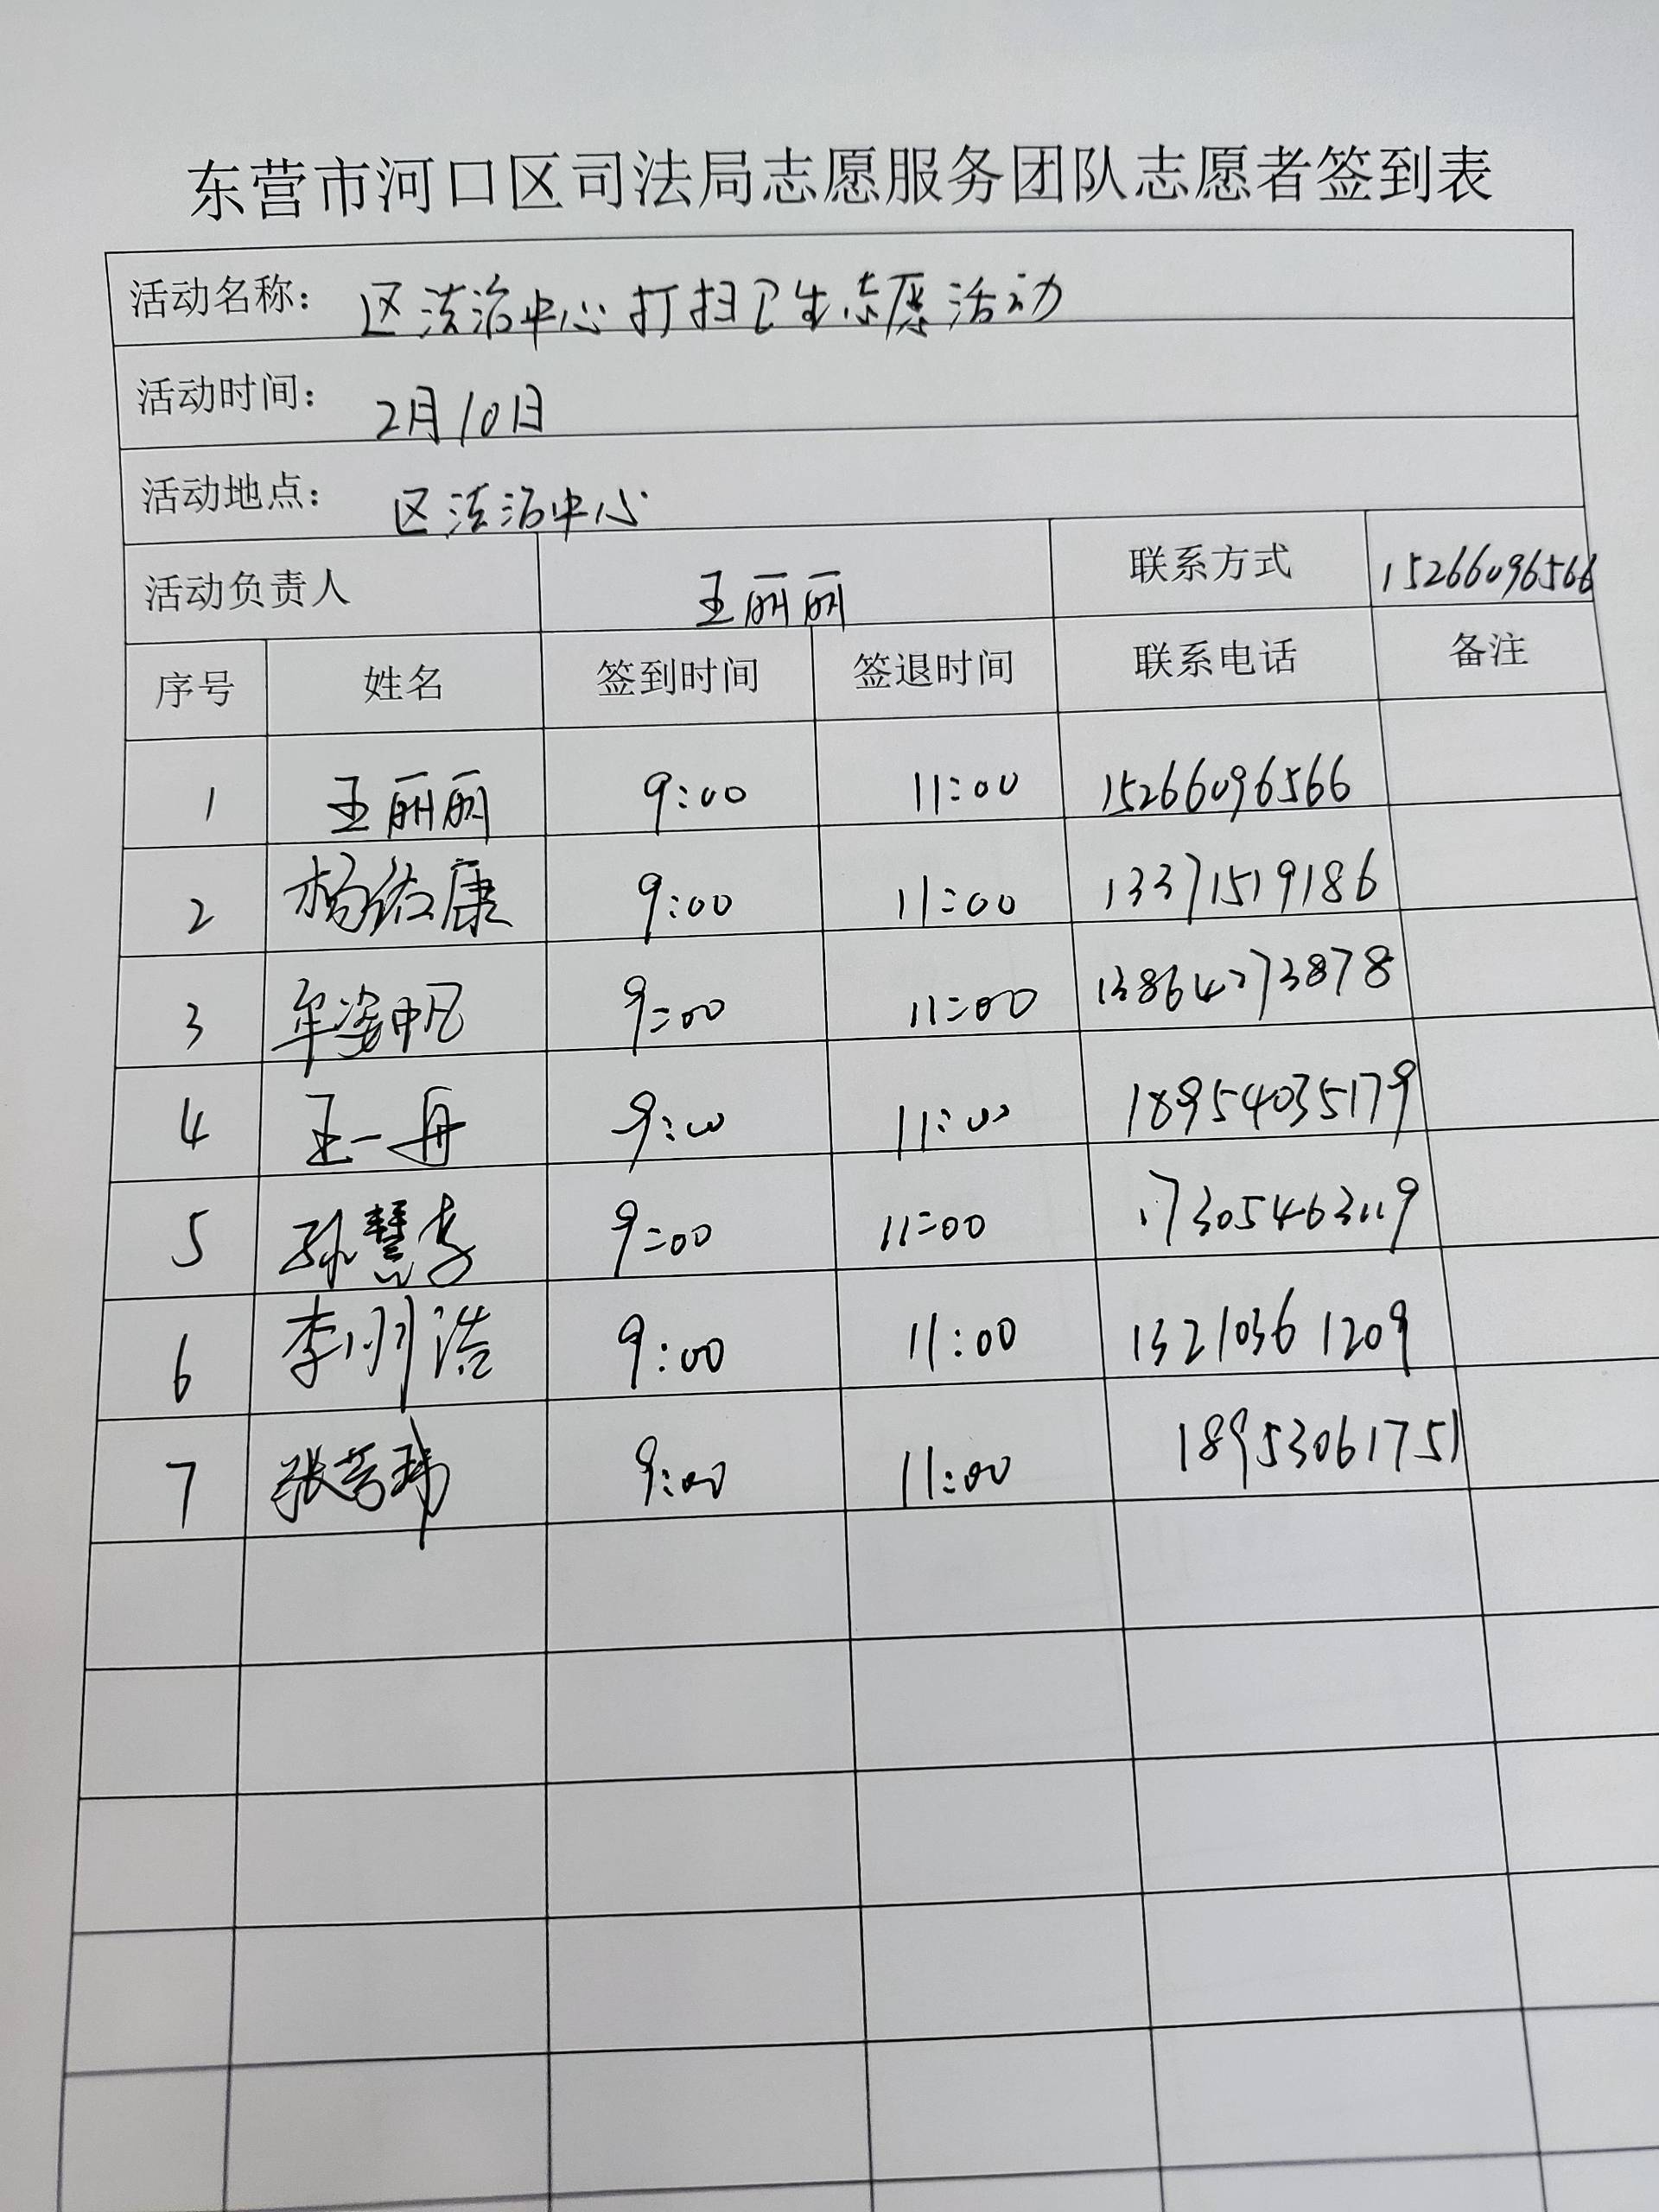 东营市河口区司法局志愿服务团队志愿者签到表
活动名称： 区法治中心打扫卫生志愿活动
活动时间： 2月10日
活动地点： 区法治中心
活动负责人 王丽丽 联系方式 15266096566
序号 姓名 签到时间 签退时间 联系电话 备注
1 王丽丽 9:00 11:00 15266096566
2 杨佑康 9:00 11:00 13371519186
3 牟姿帆 9:00 11:00 13864273878
4 王一舟 9:00 11:00 18954035179
5 孙慧 9:00 11:00 17305463119
6 李明浩 9:00 11:00 13210361209
7 张芳玮 9:00 11:00 18953061751